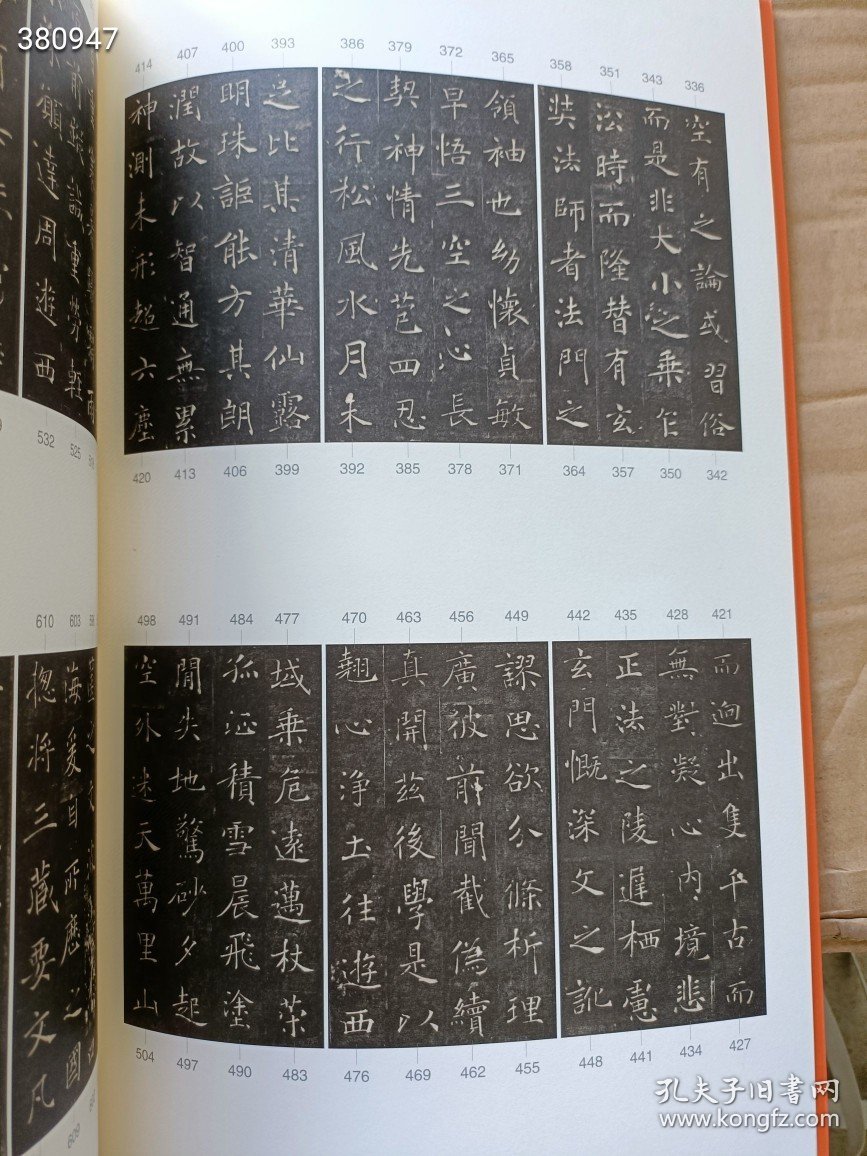 380947
336
343
351
358
365
372
379
386
393
400
407
414
空有之論或習俗
而是非大小之乘乍
沿時而隆替有玄
奘法師者法門之
領袖也幼懷貞敏
早悟三空之心長
契神情先苞四忍
之行松風水月未
足比其清華仙露
明珠詎能方其朗
潤故以智通無累
神測未形超六塵
342
350
357
364
371
378
385
392
399
406
413
420
421
428
435
442
449
456
463
470
477
484
491
498
而逈出隻千古而
無對凝心内境悲
正法之陵遲栖慮
玄門慨深文之訛
謬思欲分條析理
廣彼前聞截偽續
真開茲後學是以
翹心浄土往遊西
域乘危遠邁杖策
孤征積雪晨飛塗
閒失地驚砂夕起
空外迷天萬里山
427
434
441
448
455
462
469
476
483
490
497
504
前蹤誠重勞輕
願達周遊西
525
532
603
610
海爰自所歷之國
揔將三藏要文凡
609
孔夫子旧书网
www.kongfz.com